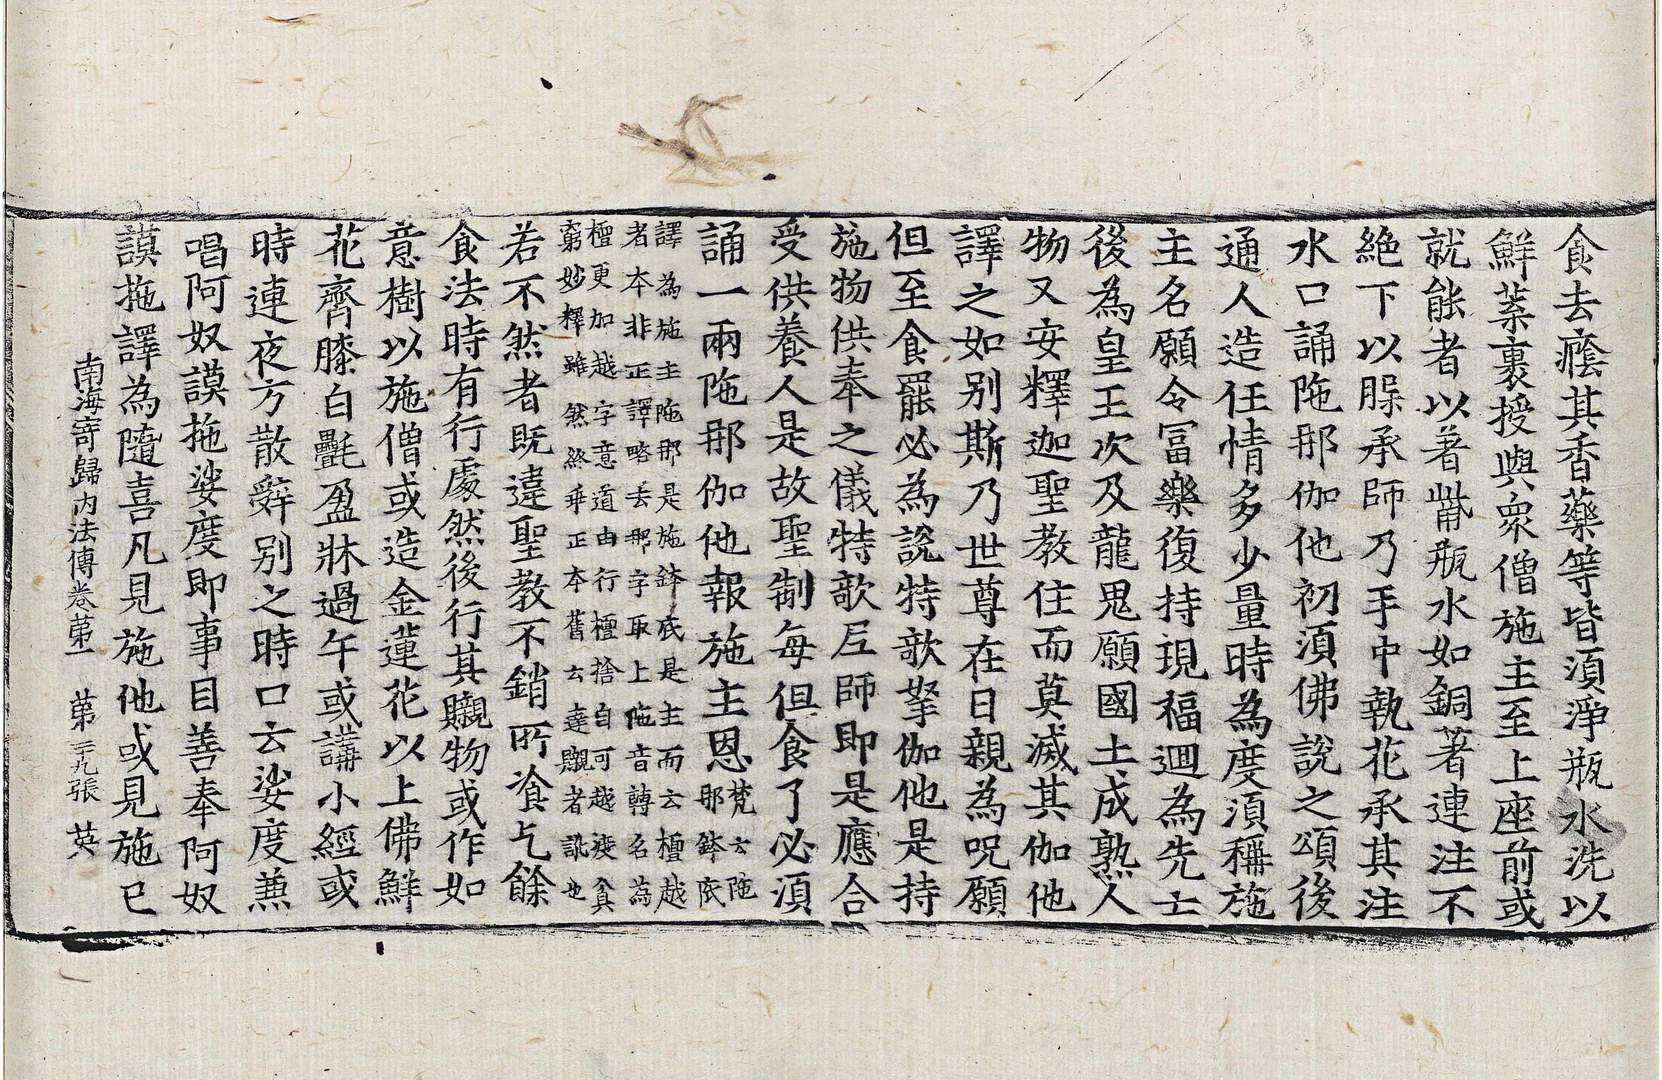 食去癊其香藥等皆須淨瓶水洗以
鮮葉裹授與衆僧施主至上座前或
就能者以著觜瓶水如銅著連注不
絶下以腂承師乃手中執花承其注
水口誦陁那伽他初須佛說之頌後
通人造任情多少量時為度須稱施
主名願令冨樂復持現福迴為先亡
後為皇王次及龍鬼願國土成熟人
物又安釋迦聖教住而莫滅其伽他
譯之如別斯乃世尊在日親為呪願
但至食罷必為說特歌拏伽他是持
施物供奉之儀特歌尼師即是應合
受供養人是故聖制每但食了必須
誦一兩陁那伽他報施主恩
梵云陁
那鉢底
譯為施主陁那是施鉢底是主而云檀越
者本非正譯略去那字取上陁音轉名為
檀更加越字意道由行檀捨自可越渡貧
窮妙釋雖然終乖正本舊云達嚫者訛也
若不然者旣違聖教不銷所飡乞餘
食法時有行處然後行其嚫物或作如
意樹以施僧或造金蓮花以上佛鮮
花齊膝白㲲盈牀過午或講小經或
時連夜方散辭別之時口云娑度兼
唱阿奴謨拖娑度即事目善奉阿奴
謨拖譯為隨喜凡見施他或見施已
南海寄歸內法傳卷第一 第二十九張 英